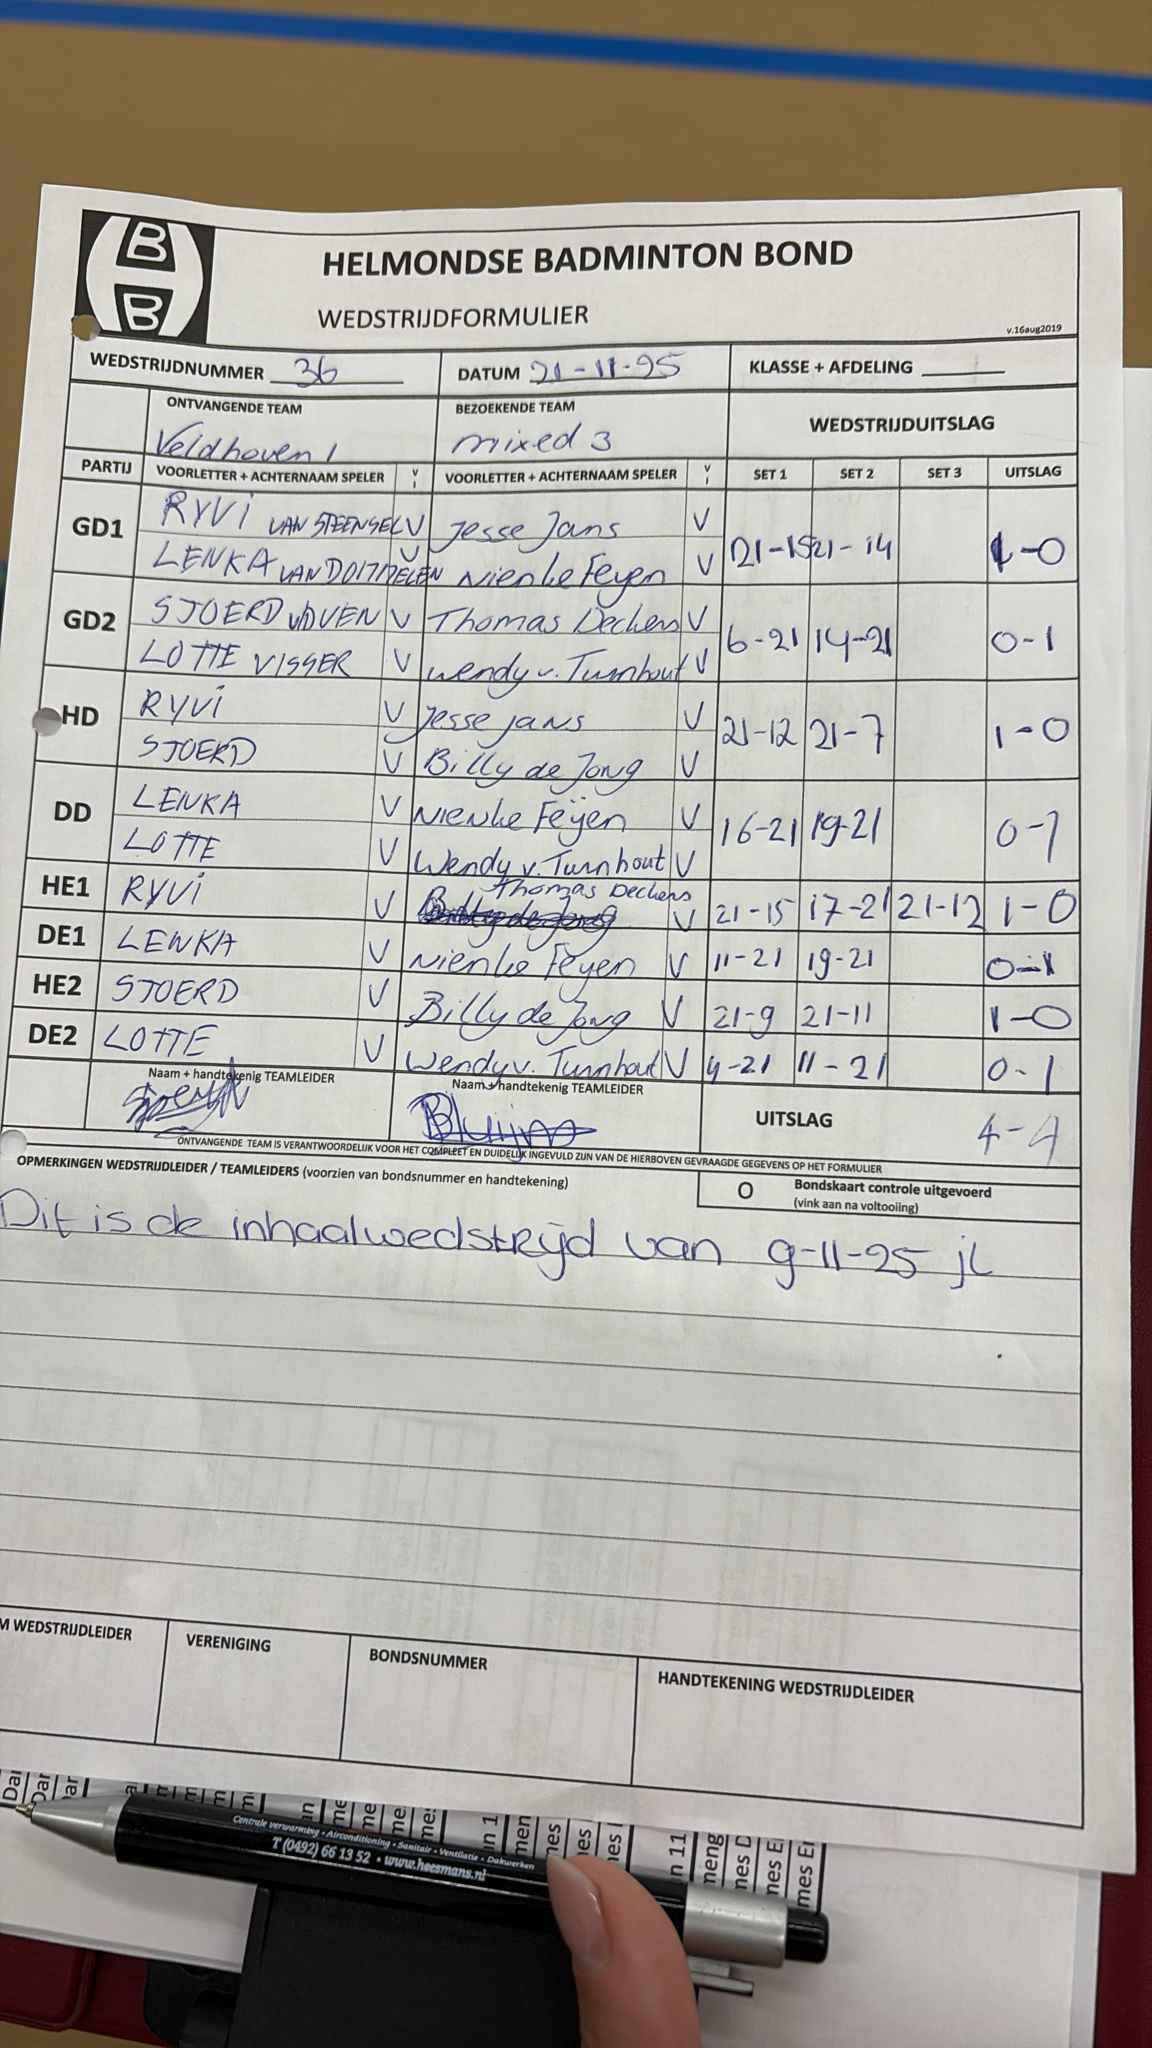 B
B
HELMONDSE BADMINTON BOND
WEDSTRIJDFORMULIER
v.16aug2019
WEDSTRIJDNUMMER 36 DATUM 21-11-25 KLASSE + AFDELING
ONTVANGENDE TEAM BEZOEKENDE TEAM WEDSTRIJDUITSLAG
Veldhoven 1 mixed 3
PARTIJ VOORLETTER + ACHTERNAAM SPELER V VOORLETTER + ACHTERNAAM SPELER V SET 1 SET 2 SET 3 UITSLAG
GD1 RYVI VAN STEENSEL V Jesse Jans V 21-15 21-14 1-0
LENKA V Nienke Feyen V
GD2 SJOERD VD VEN V Thomas Deckers V 6-21 14-21 0-1
LOTTE VISSER V Wendy v. Turnhout V
HD RYVI V Jesse Jans V 21-12 21-7 1-0
SJOERD V Billy de Jong V
DD LENKA V Nienke Feyen V 16-21 19-21 0-1
LOTTE V Wendy v. Turnhout V
HE1 RYVI V Thomas Deckers V 21-15 17-21 21-12 1-0
DE1 LENKA V Nienke Feyen V 11-21 19-21 0-1
HE2 SJOERD V Billy de Jong V 21-9 21-11 1-0
DE2 LOTTE V Wendy v. Turnhout V 4-21 11-21 0-1
Naam + handtekenig TEAMLEIDER Naam + handtekenig TEAMLEIDER UITSLAG 4-4
ONTVANGENDE TEAM IS VERANTWOORDELIJK VOOR HET COMPLEET EN DUIDELIJK INGEVULD ZIJN VAN DE HIERBOVEN GEVRAAGDE GEGEVENS OP HET FORMULIER
OPMERKINGEN WEDSTRIJDLEIDER / TEAMLEIDERS (voorzien van bondsnummer en handtekening)
O Bondskaart controle uitgevoerd
(vink aan na voltooiing)
Dit is de inhaalwedstrijd van 9-11-25 jl
M WEDSTRIJDLEIDER VERENIGING BONDSNUMMER HANDTEKENING WEDSTRIJDLEIDER
Centrale verwarming • Airconditioning • Sanitair • Ventilatie • Dakwerken
T (0492) 66 13 52 • www.heesmans.nl